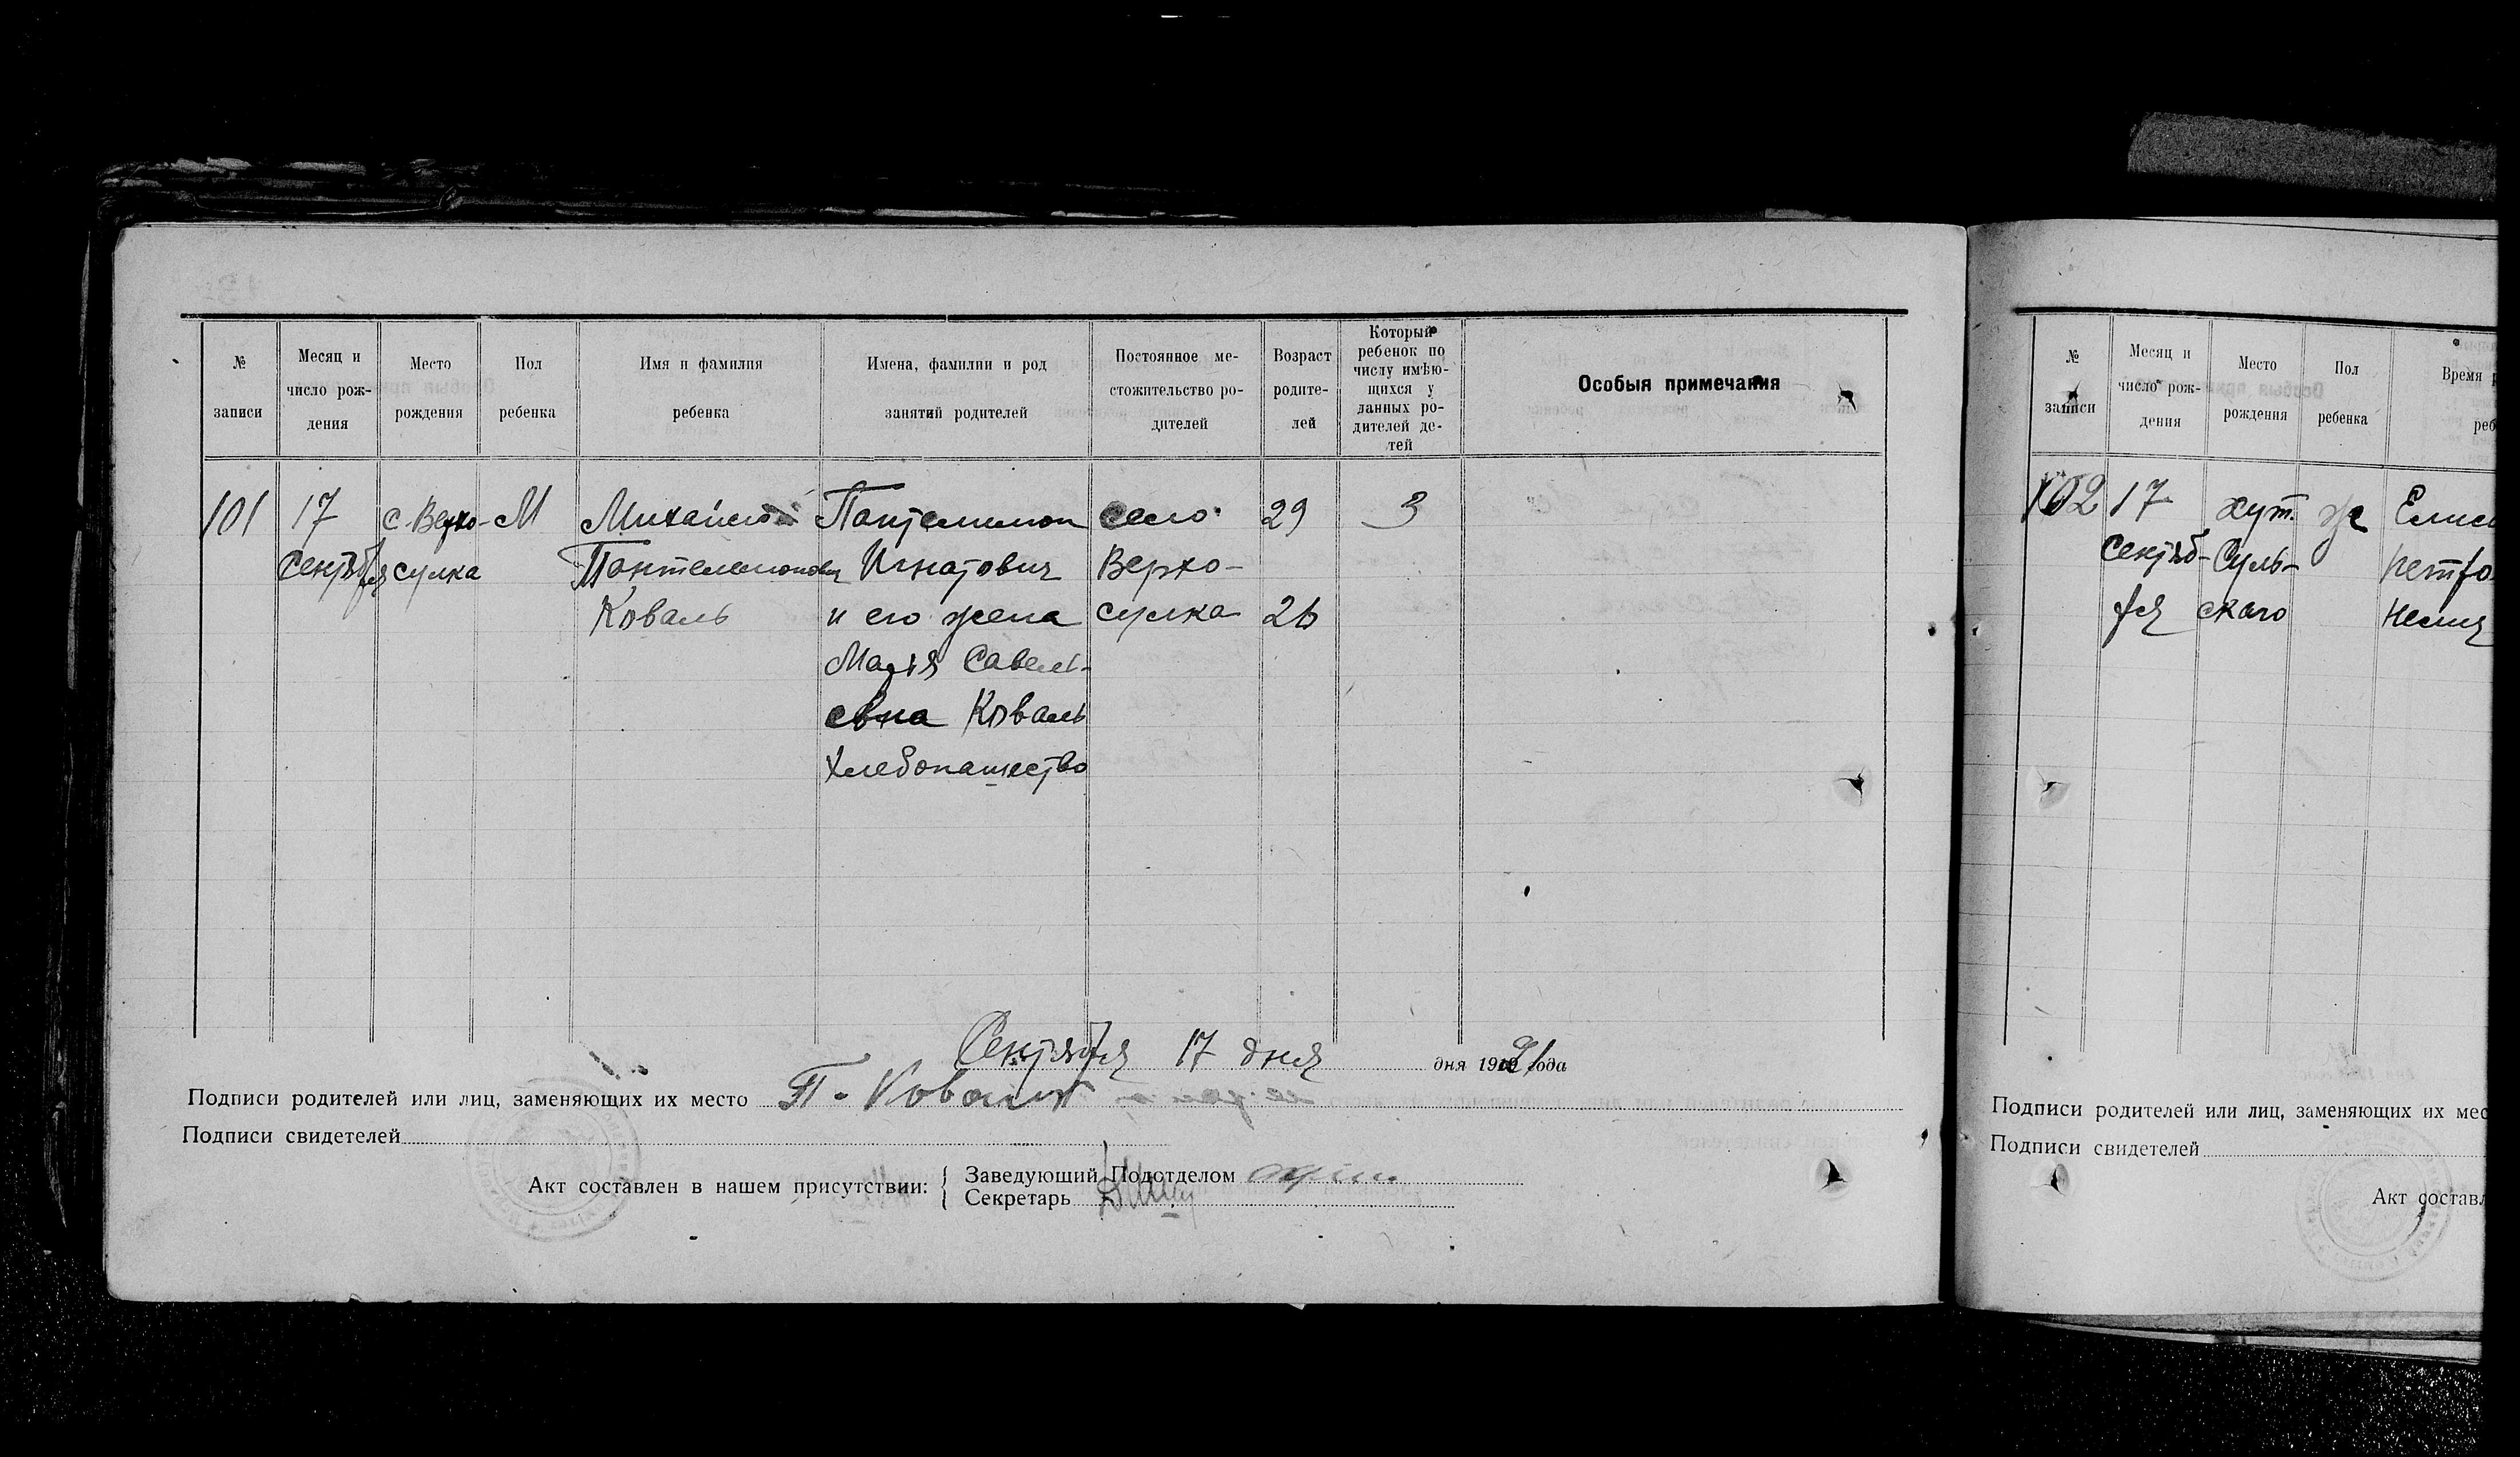 № записи
Месяц и число рож-дения
Место рождения
Пол ребенка
Имя и фамилия ребенка
Имена, фамилии и род занятий родителей
Постоянное ме-стожительство ро-дителей
Возраст родите-лей
Который ребенок по числу имѣю-щихся у данных ро-дителей де-тей
Особыя примечания
101
17
Сентября
с. Верхо-
сулка
М
Михаил
Пантелемонович
Коваль
Пантелимон
Игнатович
и его жена
Мария Савель-
евна Коваль
Хлебопашество
село
Верхо-
сулка
29
26
3
Сентября 17 дня дня 1921 года
Подписи родителей или лиц, заменяющих их место П. Коваль
Подписи свидетелей
Акт составлен в нашем присутствии:
Заведующий Подотделом
Секретарь
№ записи
Месяц и число рож-дения
Место рождения
Пол ребенка
Время
102
17
Сентяб-
ря
хут.
Суль-
скаго
ж
Подписи родителей или лиц, заменяющих их мес
Подписи свидетелей
Акт составл